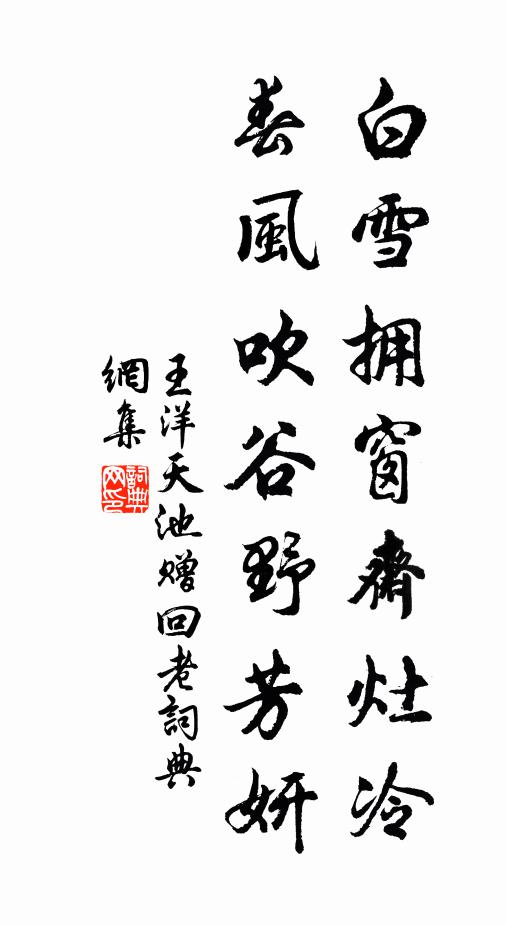 白雪拥窗齋灶冷
春風吹谷野芳妍
王洋天池赠回老詞典
網集
詞典網印